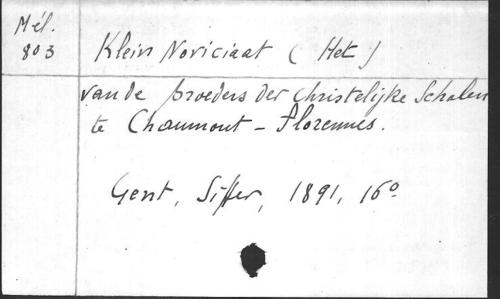 Mél.
803
Klein Noviciaat (Het)
van de broeders der Christelijke Scholen
te Chaumont - Florennes.
Gent, Siffer, 1891, 16°